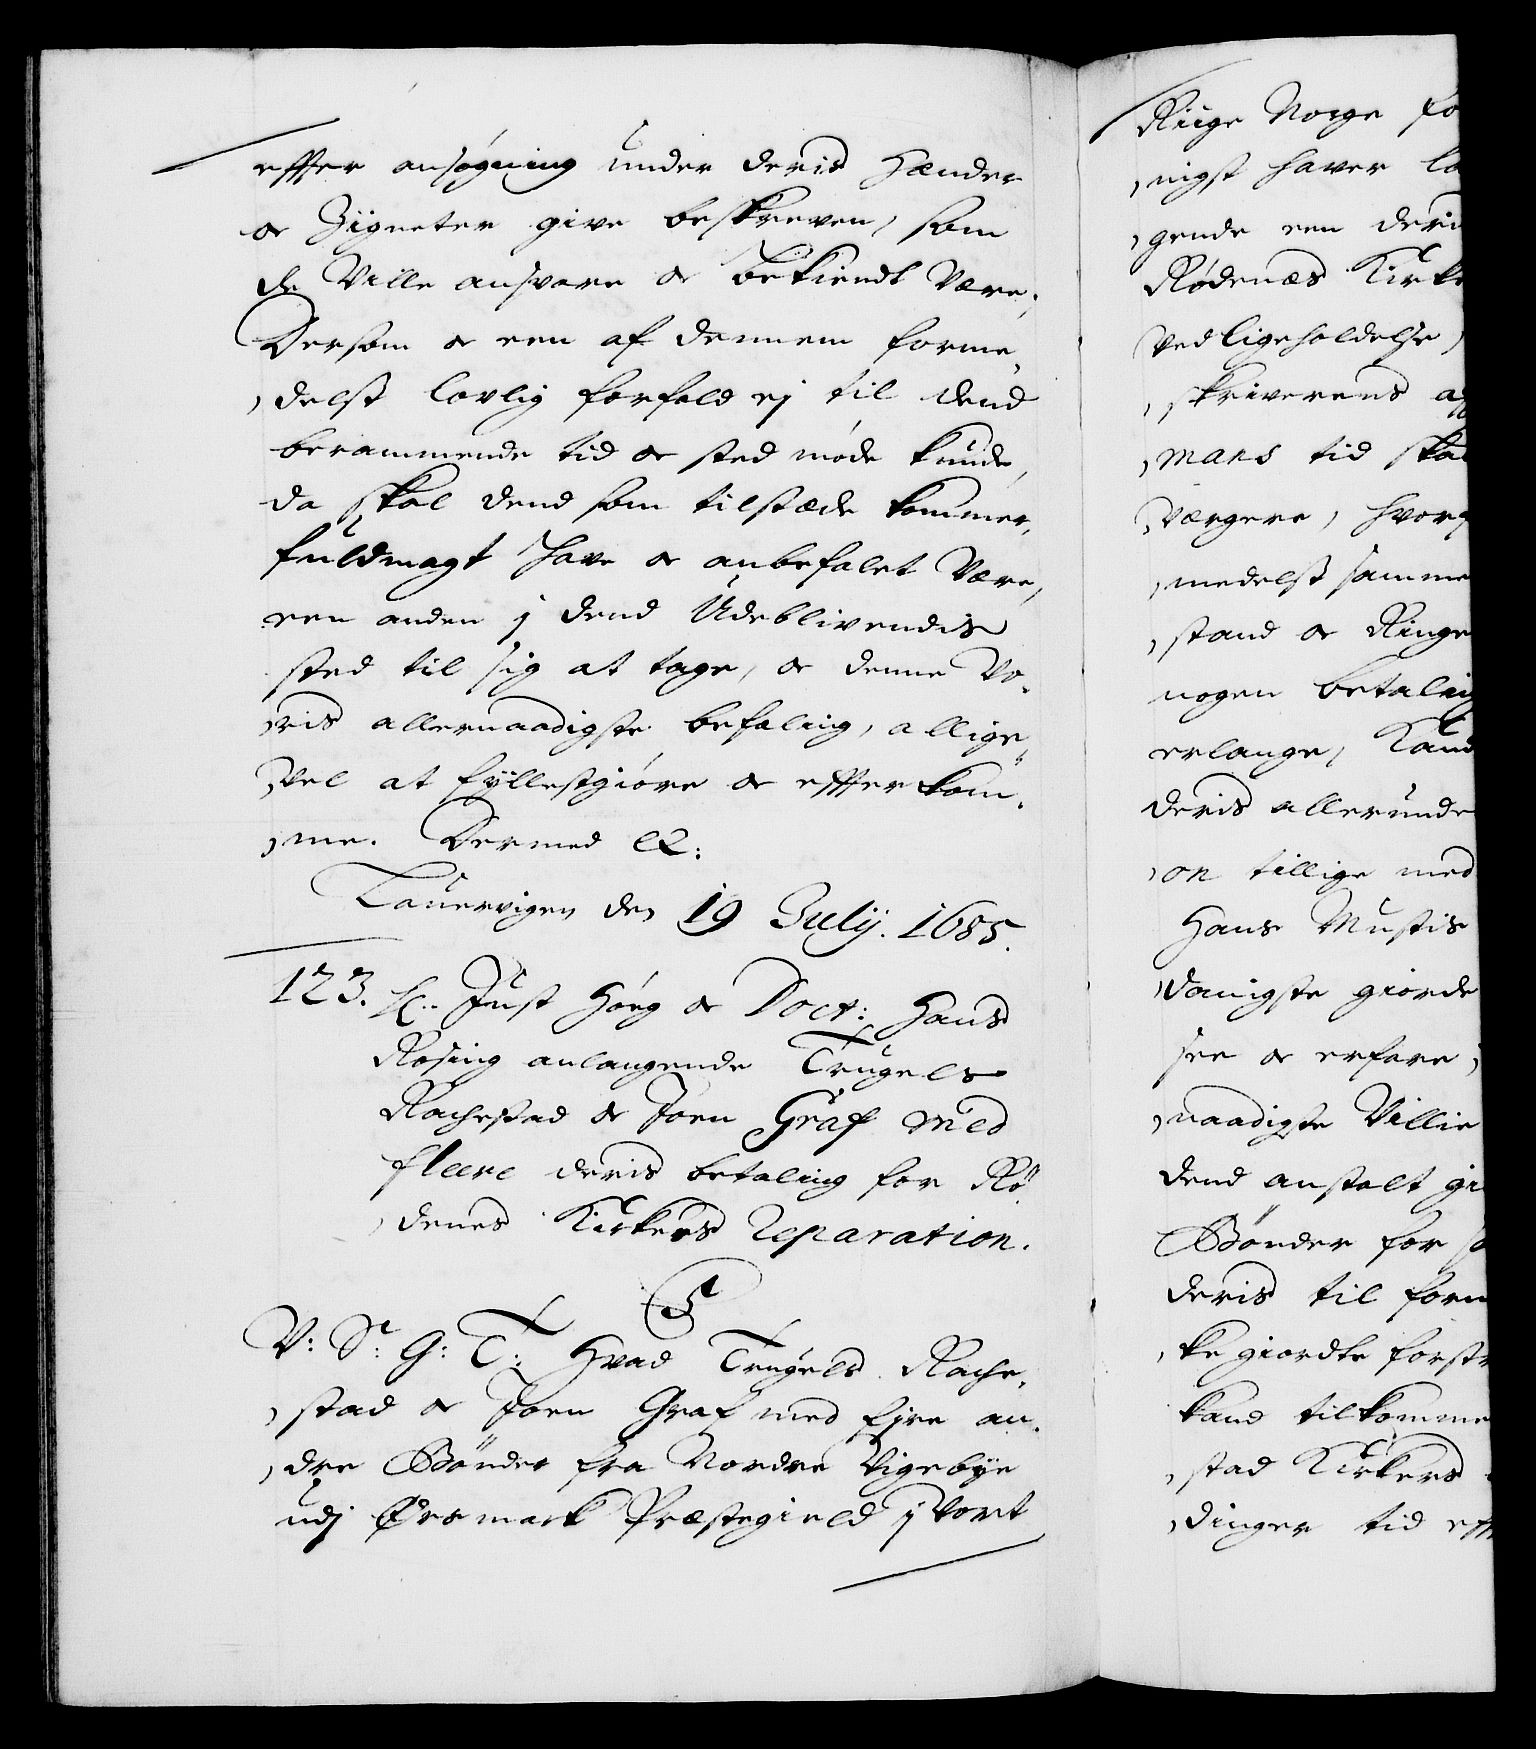 effter ansøgning under deris Hænder
oc Zigneter give beskreven, som
de Ville ansvare oc bekiendt Være,
Dersom oc een af dennem forme,
,delst lovlig forfald ej til dend
berammende tid oc sted møde kunde,
da skal dend som tilstæde kommer,
fuldmagt have oc anbefalet Være,
een anden j dend Udeblivendis
sted til sig at tage, oc denne Vo,
,ris allernaadigste befaling, allige,
,vel at fyllestgiøre oc effterkom,
,me. Dermed etc:
Lauervigen den 19 Julij. 1685.
123. Just Høeg oc Doct: Hans
Rosing anlangende Trugels
Rachestad oc Joen Graf med
fleere deris betaling for Rø
,denes Kirkes Reparation.
C5
V: S: G: T: Hvad Trugels Rache,
,stad oc Joen Graf med fire an,
,dre Bønder fra Nordre Vigebye
udj Øresmark Præstegield j Vort
Riige Norge
,nigst haver
,gende een
Rødenæs Kirke
Vedligeholdelse,
,skriverens
,mans tid
,Værgere,
,medelst samme
,stand oc Ringe
nogen betaling
erlange, Kand
deris allerunde
,on tillige med
Hans Mustis
,danigste giorde
see oc erfare,
,naadigste Villie
dend anstalt
Bønder for
deris til
,ke giordte
kand tilkomme
,stad Kirkes
,dinger tid